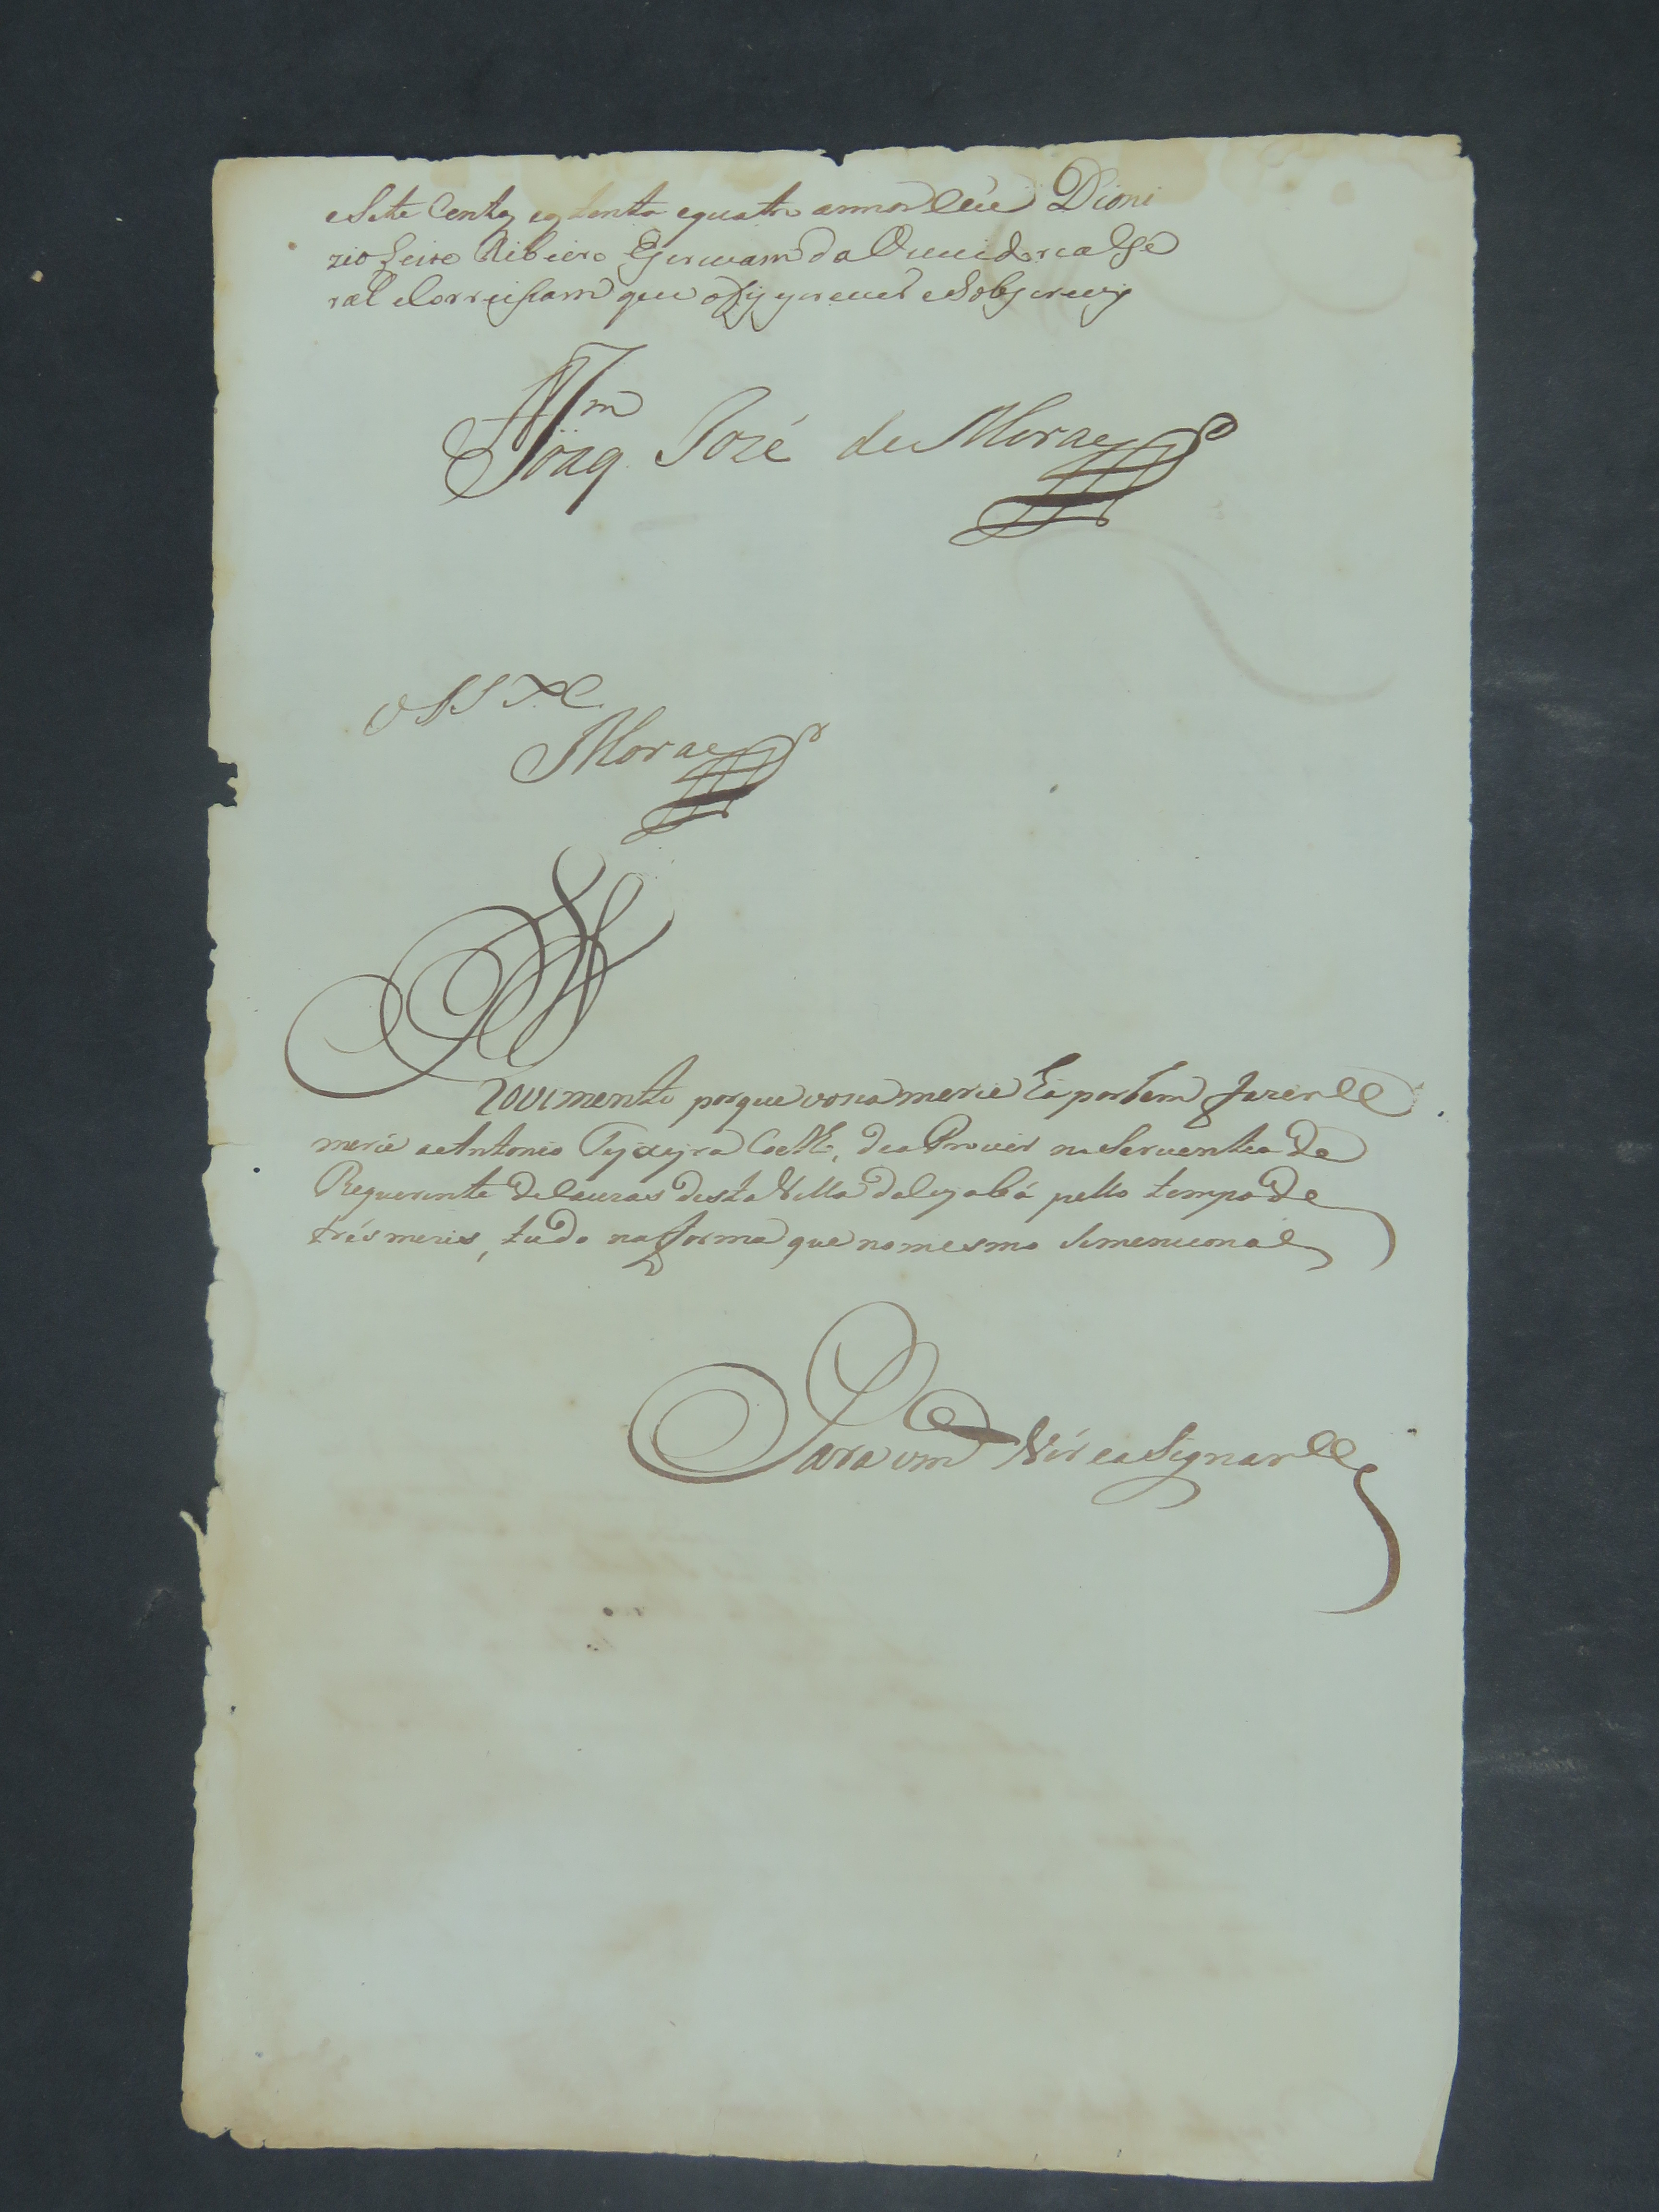 eSete Centos eoitenta equatro annos Eeu Dioni
zio Leite Ribeiro Escrivam da Ouvidoria Ge
ral eCorreiçam que ofis escrever eSobscrevy
Joaqm José de Moraes
VSSXC
Moraes
Provimento porque vossa merce ha porbem fazer
merce aAntonio Teyxeyra Coelho, dea Prover na Serventia de
Requerente deCauzas desta Villa doCuyabá pello tempo de
três mezes, tudo na forma que nomesmo Semenciona
Para vm Ver eaSignar